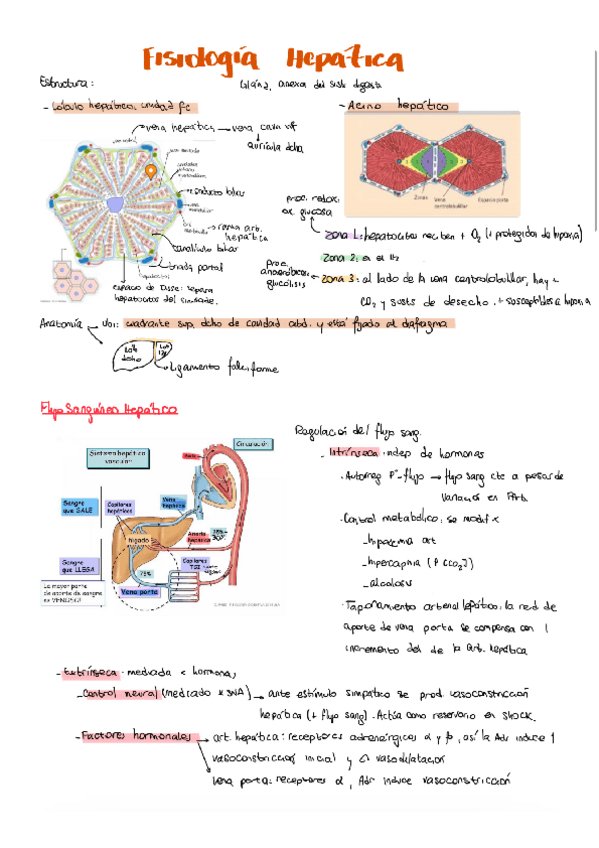 Fisiología Hepática
Estructura:
Glánd. anexa del sist digest
- Lobulo hepático, unidad fc
- Acino hepático
vena hepática → vena cava inf
aurícula dcha
conducto biliar
rama art. hepática
canalículo biliar
triada portal
hepatocitos
espacio de Disse: separa
hepatocitos del sinusoide.
Zonas
Vena centrolobulillar
Espacio porta
proc. redox:
ox. glucosa
Zona 1: hepatocitos reciben + O2 (+ protegidos de hipoxia)
Zona 2:
proc. anaerobicos:
glucólisis
Zona 3: al lado de la vena centrolobulillar, hay +
CO2 y susts de desecho. + susceptibles a hipoxia
Anatomía
Ubi: cuadrante sup. dcho de cavidad abd. y está fijado al diafragma
Lob dcho
Lob izq
Ligamento falciforme
Flujo Sanguíneo Hepático
Sistema hepático vascular
Circulación
Sangre que SALE
Capilares hepáticos
Vena hepática
hígado
Arteria hepática
Sangre que LLEGA
Capilares
75%
Vena porta
La mayor parte de aporte de sangre es VENOSA!!
Regulación del flujo sang.
- Intrínseca: indep de hormonas
· Autorreg Pº-flujo → flujo sang cte a pesar de
variación en PArt.
· Control metabólico: se modif x
- hipoxemia art
- hipercapnia (PCO2↑)
- alcalosis
· Taponamiento arterial hepático: la red de
aporte de vena porta se compensa con 1
incremento del de la art. hepática
- Extrínseca: mediada x hormonas
- Control neural (mediado x SNA) → ante estímulo simpático se prod. vasoconstricción
hepática (+ flujo sang). Actúa como reservorio en shock.
- Factores hormonales
art. hepática: receptores adrenérgicos α y β, así la Adr induce 1
vasoconstricción inicial y vasodilatación
Vena porta: receptores α, Adr induce vasoconstricción